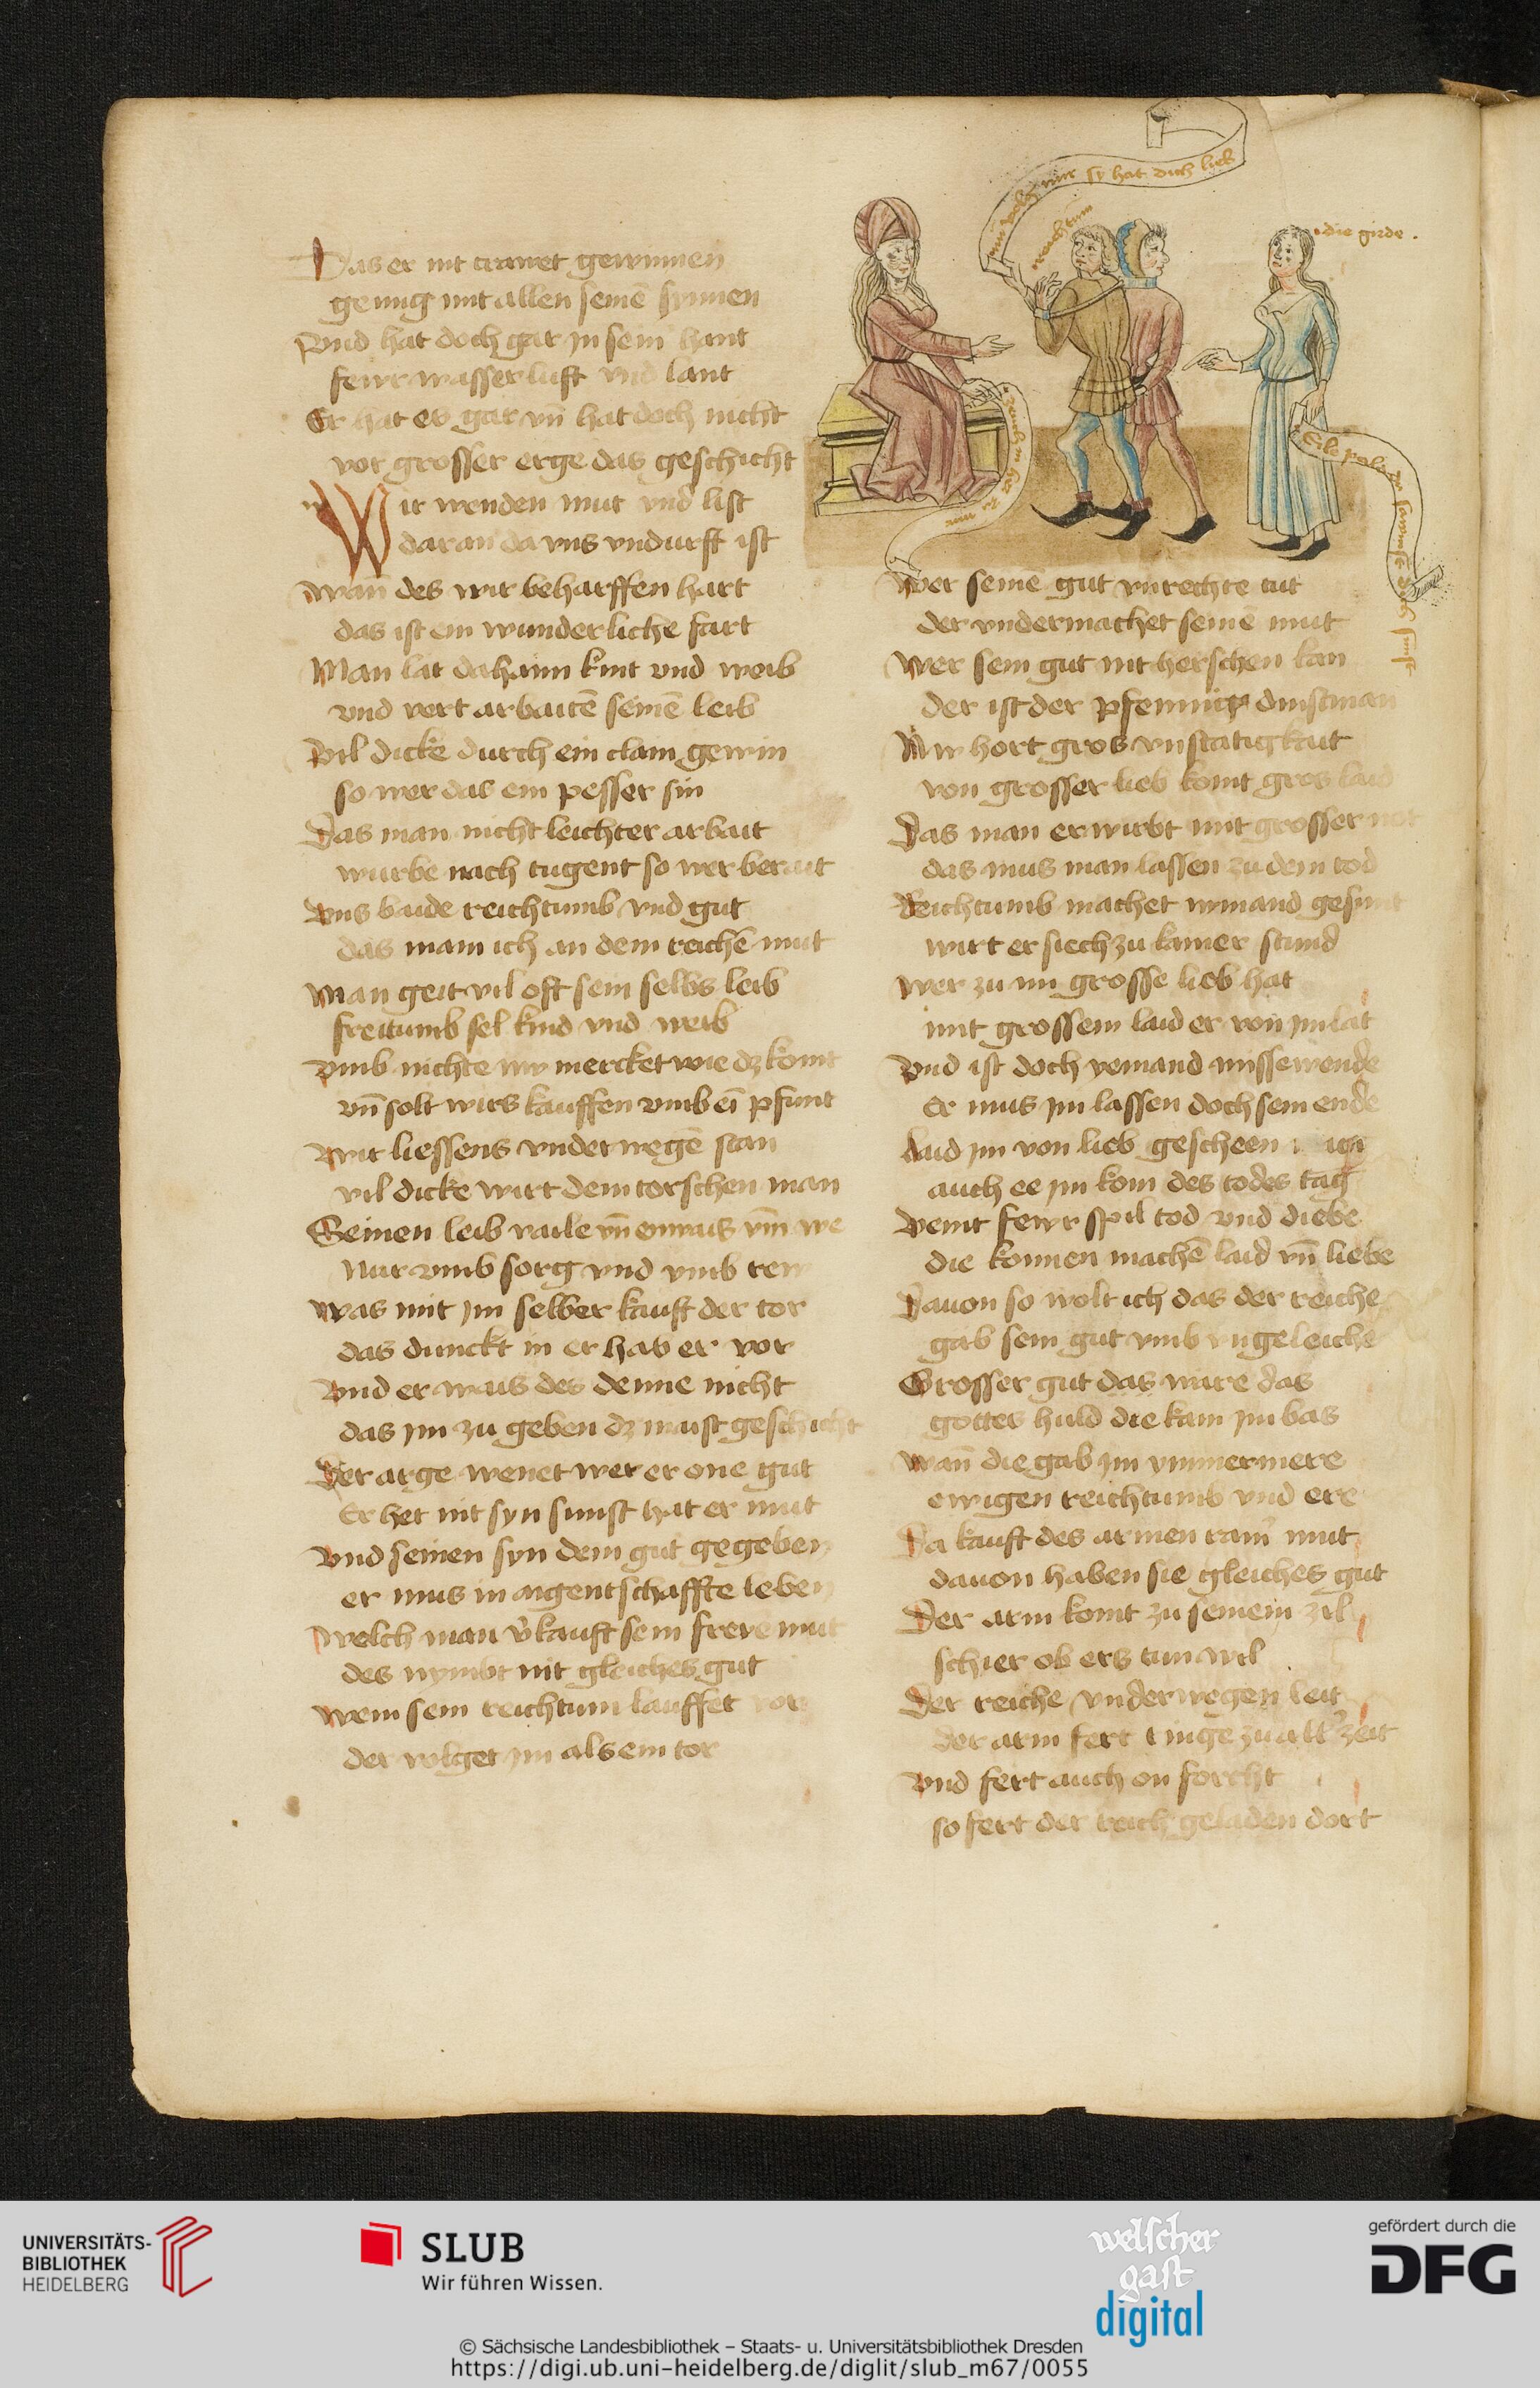 Das er nit trawet gewinnen
genug mit allen seinē synnen
Vnd hat doch gar jn sein hant
fewr wasser luft vnd lant
Er hat es gar vn̄ hat doch nicht
vor grosser erge das geschicht
Wir wenden mut vnd list
daran da vns vndurft ist
wan̄ des wir beharffen hart
das ist ein wunderliche fart
Man lat dahaim kint vnd weib
vnd vert arbaitē seinē leib
Vil dicke durch ein clain gewin
so wer das ein pesser sin
Das man nicht leichter arbait
wurbe nach tugent so wer berait
Vns baide reichtumb vnd gut
das main ich an dem reichē mut
Man geit vil oft sein selbs leib
freitumb sel kind vnd weib
Vmb nichte nw mercket wie dz komt
vn̄ solt wirs kauffen vmb eī pfunt
Wir liessens vnder wegē stan
vil dicke wirt dem torschen man
Seinen leib vaile vn̄ enwais vm̄ we
Nur vmb sorg vnd vmb rew
Was mit jm selber kauft der tor
das dunckt in er hab er vor
Vnd er wais des denne nicht
das jm zu geben dz maist geschicht
Der arge wenet wer er one gut
Er het nit syn sunst hat er mut
Vnd seinen syn dem gut gegeben
er mus in aigentschaffte leben
Welch man v̓kauft sein freye mut
des nymbt nit gleiches gut
Wem sein reichtum lauffet vor
der volget jm als ein tor
nim volg mir sy hat dich lieb
reichtum
die girde
Wer seine gut vnrechte tut
der vndermachet seinē mut
Wer sein gut nit herschen kan
der ist der pfennig dinstman
Nw hort gros vnstatigkait
von grosser lieb komt gros laid
Das man erwirbt mit grosser not
das mus man lassen zu dem tod
Reichtumb machet nymand gesunt
wirt er siech zu kainer stund
Wer zu im grosse lieb hat
mit grossem laid er von jm lat
Vnd ist doch yemand missewende
Er mus jm lassen doch sein ende
Laid jm von lieb gescheen
auch ee jm kom des todes tag
Veint fewr spil tod vnd diebe
die konnen machē laid vn̄ liebe
Davon so wolt ich das der reiche
gab sein gut vmb vngeleiche
Grosser gut das ware das
gottes huld die kam jm bas
Wan̄ die gab jm ymmermere
ewigen reichtumb vnd ere
Da kauft des armen rain̓ mut
davon haben sie gleiches gut
Der arm komt zu seinem zil
schier ob ers tun wil
Der reiche vnderwegen leit
der arm fert ringe zu all̓ zeit
Vnd fert auch on forcht
so fert der reich geladen dort
UNIVERSITÄTS-
BIBLIOTHEK
HEIDELBERG
SLUB
Wir führen Wissen.
welscher
gast
digital
gefördert durch die
DFG
© Sächsische Landesbibliothek – Staats- u. Universitätsbibliothek Dresden
https://digi.ub.uni-heidelberg.de/diglit/slub_m67/0055